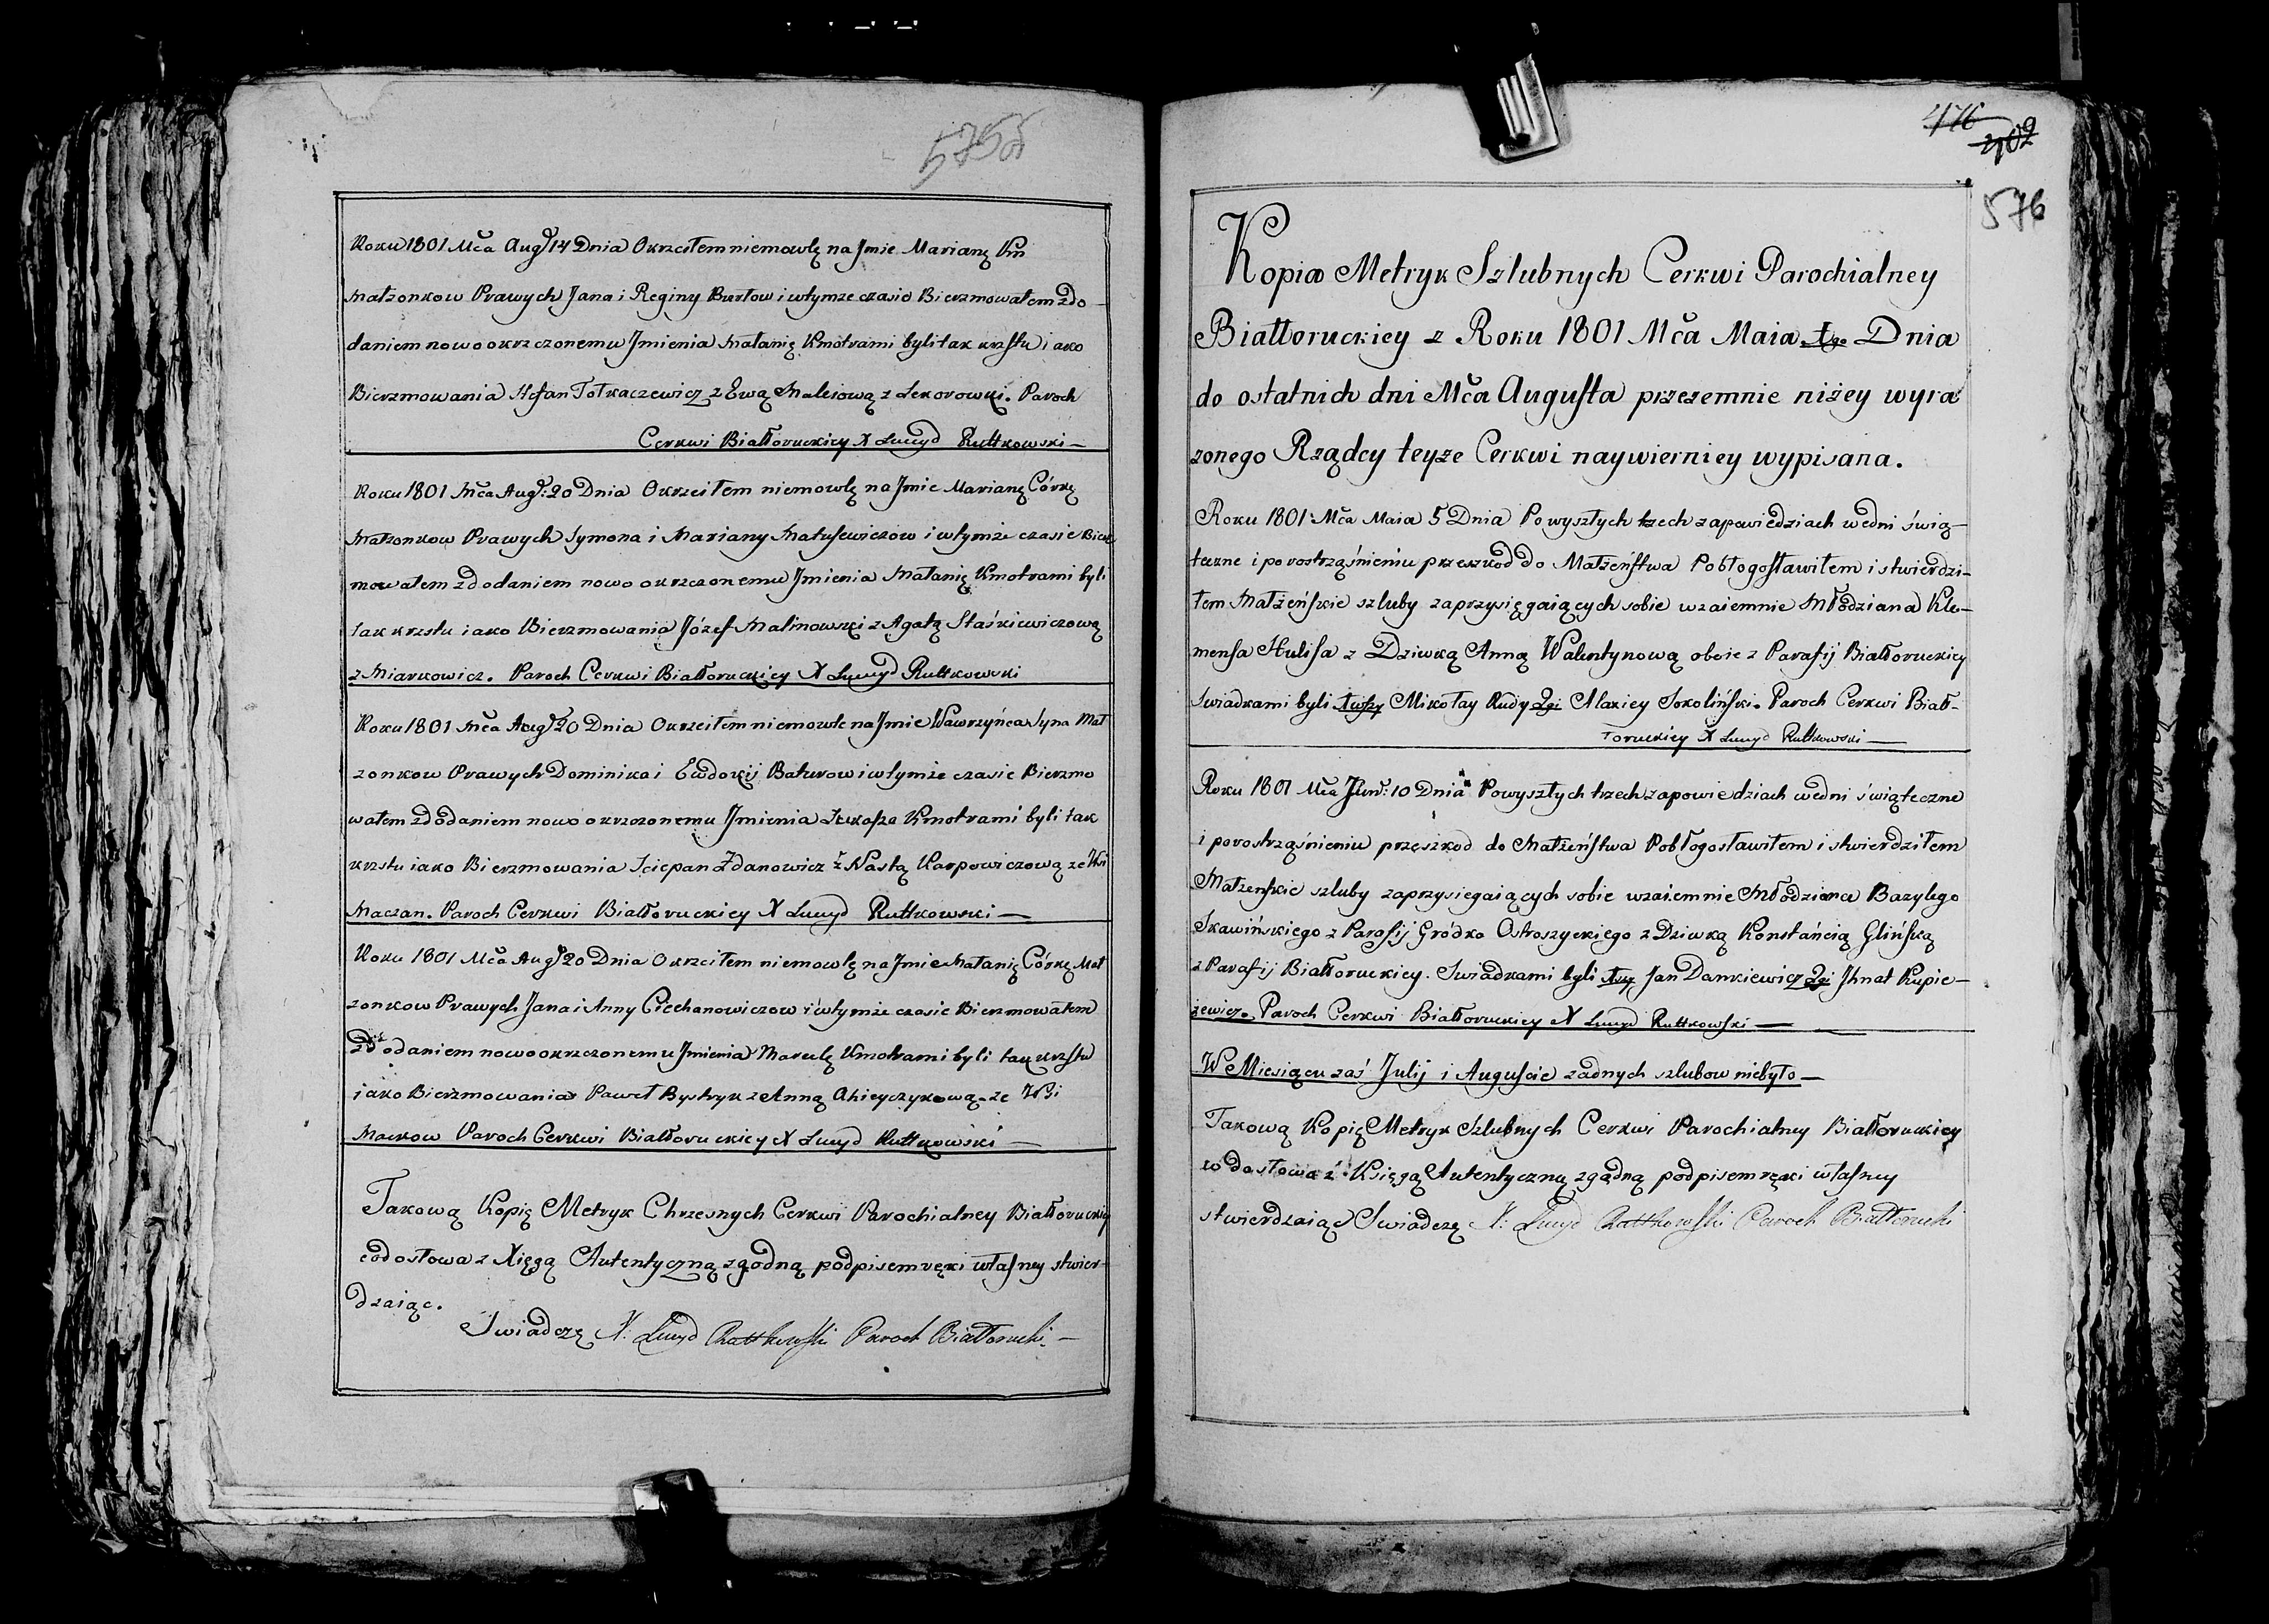 575об
Roku 1801 Mca Augt 14 Dnia Okrzciłem niemowlę na Jmie Marianę
Małzonkow Prawych Jana i Reginy Burłow i wtymze czasie Bierzmowałem zdo-
daniem nowo okrzczonemu Jmienia Małanię Kmotrami byli tak krzstu iako
Bierzmowania Stefan Tołkaczewicz z Ewą Malisową z Lekorowki. Paroch
Cerkwi Białłoruckiey X Lucyd Ruttkowski —
Roku 1801 Mca Augt: 20 Dnia Okrzciłem niemowlę na Jmie Marianę Córkę
Małzonkow Prawych Symona i Mariany Matusewiczow i wtymże czasie Bierz
mowałem zdodaniem nowo okrzczonemu Jmienia Małanię Kmotrami byli
tak krzstu iako Bierzmowania Józef Malinowski z Agatą Staśkiewiczową
z Miarkowicz. Paroch Cerkwi Białłoruckiey X Lucyd Ruttkowski
Roku 1801 Mca Augt 20 Dnia Okrzciłem niemowle na Jmie Wawrzyńca Syna Mał
zonkow Prawych Dominika i Ewdokij Baturow i wtymże czasie Bierzmo
wałem zdodaniem nowo okrzczonemu Jmienia Łukasza Kmotrami byli tak
krzstu iako Bierzmowania Sciepan Zdanowicz z Nastą Karpowiczową ze Wsi
Maczan. Paroch Cerkwi Białłoruckiey X Lucyd Ruttkowski —
Roku 1801 Mca Augt 20 Dnia Okrzciłem niemowlę na Jmie Małanię Córkę Mał
zonkow Prawych Jana i Anny Ciechanowiczow i wtymże czasie Bierzmowałem
zdodaniem nowo okrzczonemu Jmienia Marculę Kmotrami byli tak krzstu
iako Bierzmowania Paweł Bystryk z Anną Ahieyczykową ze Wsi
Mackow Paroch Cerkwi Białłoruckiey X Lucyd Ruttkowski —
Takową Kopię Metryk Chrzesnych Cerkwi Parochialney Białłoruckiey
codosłowa z Xięgą Autentyczną zgodną podpisem ręki własney stwier-
dzaiąc.
Swiadczę X: Lucyd Ruttkowski Paroch Białłorucki. —
476
402
576
Kopia Metryk Szlubnych Cerkwi Parochialney
Białłoruckiey z Roku 1801 Mca Maia 1go Dnia
do ostatnich dni Mca Augusta przezemnie niżey wyra
zonego Rządcy teyze Cerkwi naywierniey wypisana.
Roku 1801 Mca Maia 5 Dnia Powyszłych trzech zapowiedziach wedni świą-
teczne i porostrząśnieniu przeszkod do Małżeństwa Pobłogosławiłem i stwierdzi-
łem Małżeńskie szluby zaprzysięgaiących sobie wzaiemnie Młodziana Kle-
mensa Hulisa z Dziwką Anną Walentynową oboie z Parafij Białłoruckiey
Swiadkami byli 1wszy Mikołay Rudy 2gi Alaxiey Sokoliński. Paroch Cerkwi Biał-
łoruckiey X Lucyd Ruttkowski —
Roku 1801 Mca Jun: 10 Dnia Powyszłych trzech zapowiedziach wedni świąteczne
i porostrząśnieniu przeszkod do Małżeństwa Pobłogosławiłem i stwierdziłem
Małzenskie szluby zaprzysiegaiących sobie wzaiemnie Młodziana Bazylego
Skawińskiego z Parafij Gródka Ostroszyckiego z Dziwką Konstáncią Glińską
z Parafij Białłoruckiey. Swiadkami byli 1szy Jan Dankiewicz 2gi Jhnat Kupie-
żewicz. Paroch Cerkwi Białłoruckiey X Lucyd Ruttkowski —
W Miesiącu zaś Julij i Auguscie zadnych szlubow niebyło —
Takową Kopię Metryk Szlubnych Cerkwi Parochialney Białłoruckiey
co dosłowa z Księgą Autentyczną zgodną podpisem ręki własney
stwierdzaiąc Swiadczę X: Lucyd Ruttkowski Paroch Białłorucki